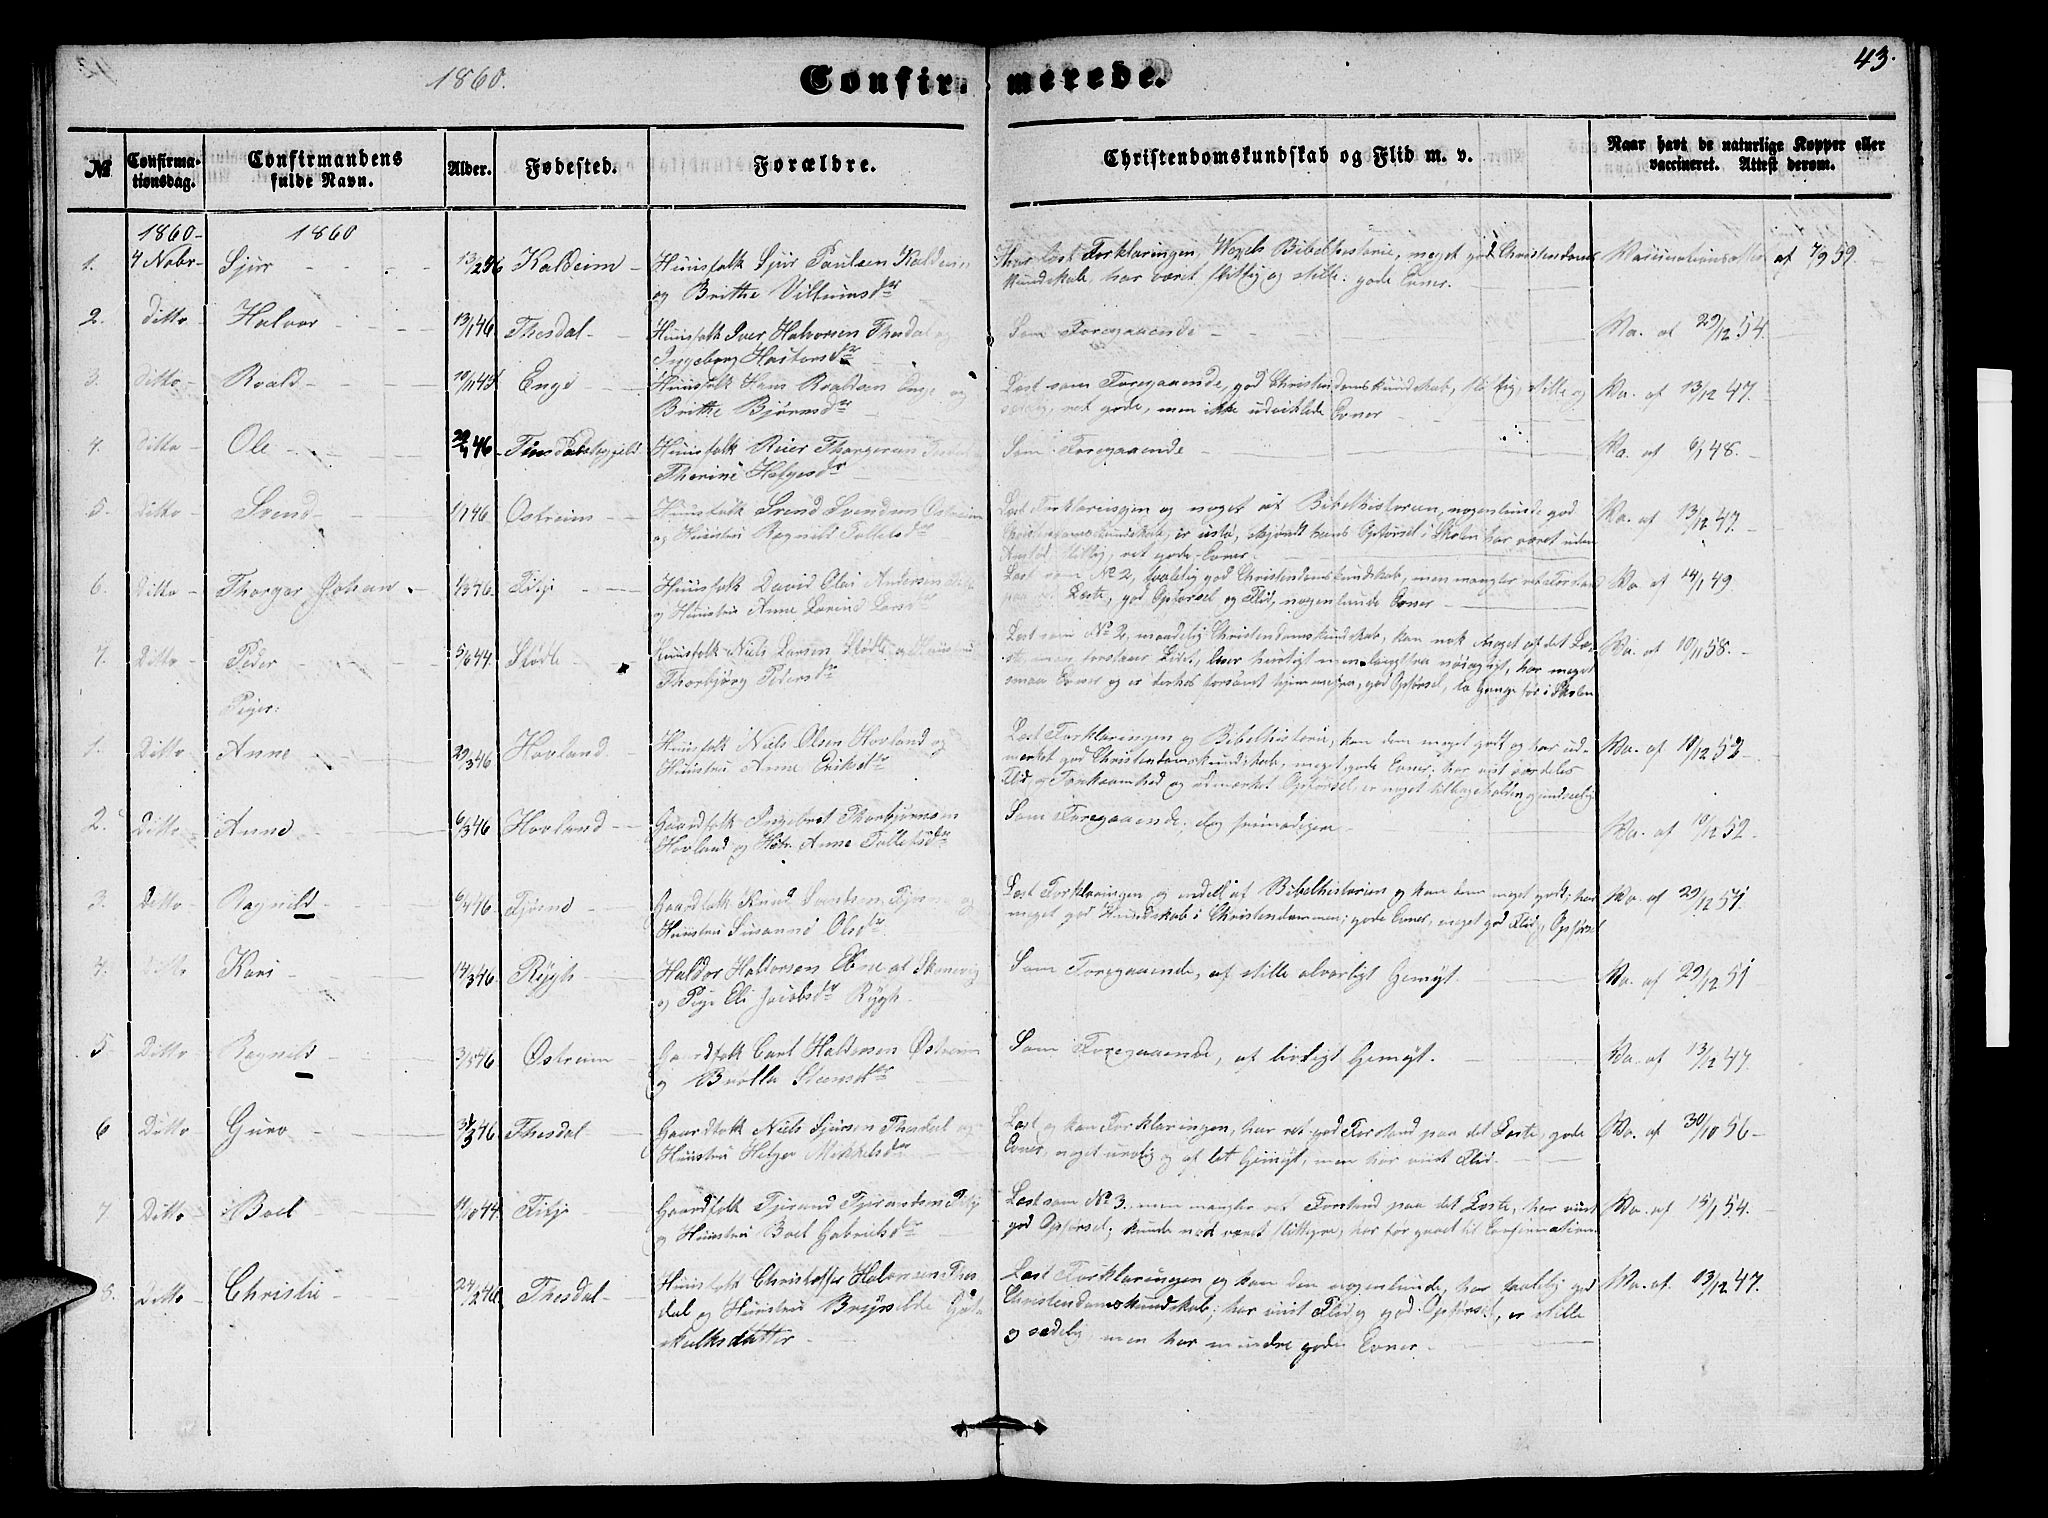 1860.
Confirmerede.
43.
№
Confirmationsdag.
Confirmandens fulde Navn.
Alder.
Fødested.
Forældre.
Christendomskundskab og Flid m. v.
Naar havt de naturlige Kopper eller vaccineret. Attest derom.
1860-
1860
1. 4 Nobr- Sjur 13/2 46 Kaldeim Huusfolk Sjur Paulsen
og Brithe Villumsdr
Forklaringen, Bibelhistorie, meget god Christendoms
kundskab har været flittig og stille. gode Evner.
af 7/9 59.
2. Ditto Halvor 13/1 46 Thesdal Huusfolk Iver Halvorsen Thesdal og
Ingeborg
Som Foregaaende
Va. af 29/12 54.
3. Ditto Roald 10/11 45 Enge Huusfolk Hans Roaldsen Enge og
Brithe Bjørnsdr
Læst som Foregaaende, god Christendomskundskab, flittig, stille og
sædelig, ret gode, men ikke udviklede Evner
Va. af 13/12 47.
4. Ditto Ole 46 Huusfolk Reier
Helgesdr
Som Foregaaende
Va. af 6/1 48.
5. Ditto Svend 1/1 46 Ostreim Huusfolk Svend Svendsen Ostreim
og Huustru Ragnild Tollefsdr
Læst Forklaringen og noget af Bibelhistorien, nogenlunde god
Christendomskundskab, er skjøndt hans Opførsel i Skolen har været uden
Anstød, flittig, ret gode Evner.
Va. af 13/12 47.
6. Ditto Thorger Johan 1/3 46. Fitje Huusfolk David Olai Andersen Fitje
og Huustru Anne Larsdr
Læst som No 2, taalelig god Christendomskundskab, men mangler ret Forstand
paa det Læste, god Opførsel og Flid, nogenlunde Evner
Va. af 14/1 49.
7. Ditto Peder 5/6 44. Stødle Huusfolk Niels Larsen Stødle og Huustru
Thorbjørg Pedersdr
Læst som No 2, maadelig Christendomskundskab, kan nok Noget af det Læ-
ste, men forstaaer Lidet, læser hurtigt men langtfra nøiagtigt, har meget
smaa Evner og er derhos forsømt hjemmefra, god Opførsel, to Gange før i Skolen
Va. af 10/11 58.
Piger:
1. Ditto Anne 29/3 46 Hovland Huusfolk Niels Olsen Hovland og
Huustru Anne Eriksdr
Læst Forklaringen og Bibelhistorie, kan dem meget godt og har ud-
mærket god Christendomskundskab, meget gode Evner; har viist særdeles
Flid og Tænksomhed og udmærket Opførsel, er noget tilbageholden og undseelig
Va. af 10/12 52
2. Ditto Anne 6/3 46 Hovland Gaardfolk Ingebret Thorbjørnsen
Hovland og Hstr. Anne Tollefsdr
Som Foregaaende, dog freimodigere
Va. af 10/12 52.
3. Ditto Ragnild 6/4 46 Fjøsne Gaardfolk Knud Svendsen Fjøsne og
Huustru Susanne Olsdr
Læst Forklaringen og endeel af Bibelhistorien og kan dem meget godt; har
meget god Kundskab i Christendommen; gode Evner, meget god Flid og Opførsel
Va. af 29/12 51.
4. Ditto Kari 14/3 46. Rygh Haldor Haldorsen Ebne af Skonevig
og Pige Eli Jacobsdr Rygh.
Som Foregaaende, af stille alvorligt Gemyt.
Va. af 29/12 51
5 Ditto Ragnild 3/5 46 Østreim Gaardfolk Carl Haldorsen Østreim
og Steensdr
Som Foregaaende, af livligt Gemyt.
Va. af 13/12 47.
6 Ditto Guro 31/3 46. Thesdal Gaardfolk Niels Sjursen Thesdal og
Huustru Helga Mikkelsdr
Læst og kan Forklaringen, har ret god Forstand paa det Læste, gode
Evner, noget urolig og af let Gemyt, men har viist Flid.
Va. af 30/10 56
7 Ditto Boel 11/10 44. Fitje Gaardfolk Tjerand Tjerandsen Fitje
og Huustru Boel Gabrielsdr
Læst som No 3, men mangler ret Forstand paa det Læste, har viist
god Opførsel; kunde nok været flittigere, har før gaaet til Confirmation
Va. af 15/1 54.
8. Ditto Christi 24/12 46 Thesdal Huusfolk Christoffer Halvorsen Thes-
dal og Huustru Brynilde Gute
skulksdatter
Læst Forklaringen og kan den nogenlunde, har taalelig god
Christendomskundskab; har viist Flid og god Opførsel, er stille
og sædelig men har mindre gode Evner
Va. af 13/12 47.